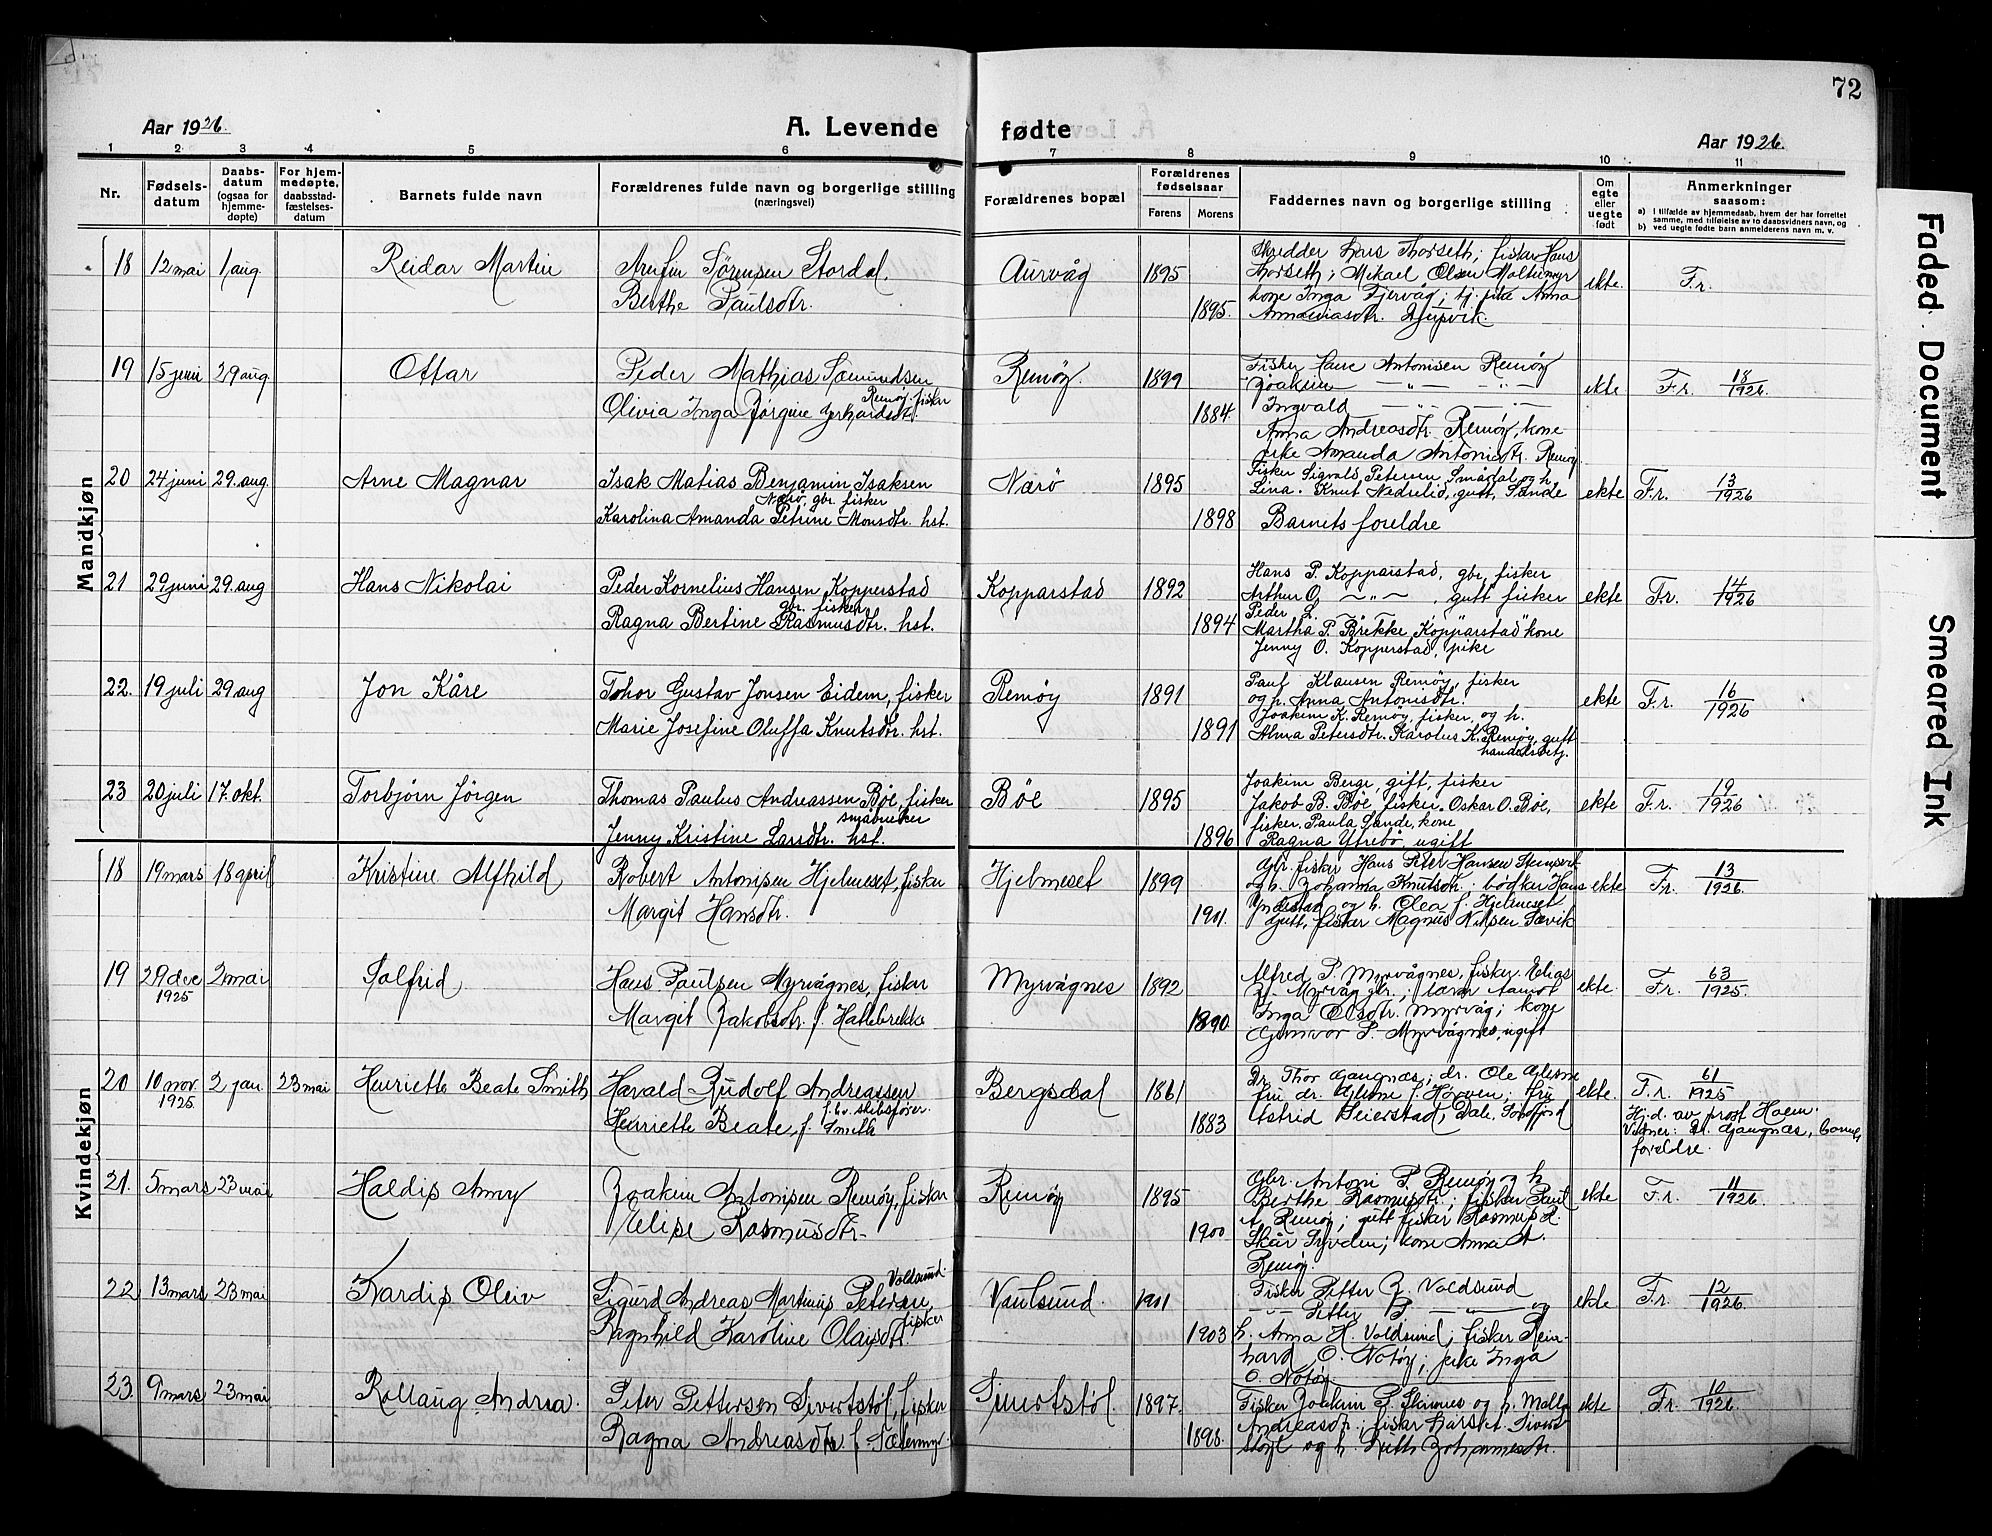 72
Aar 1926.
A. Levende fødte
Aar 1926.
1 2 3 4 5 6 7 8 9 10 11
Nr.
Fødsels-datum
Daabs-datum (ogsaa for hjemme-døpte)
For hjem-medøpte, daabsstad-fæstelses-datum
Barnets fulde navn
Forældrenes fulde navn og borgerlige stilling (næringsvei)
Forældrenes bopæl
Forældrenes fødselsaar
Farens Morens
Faddernes navn og borgerlige stilling
Om egte eller uegte født
Anmerkninger saasom:
a) I tilfælde av hjemmedaab, hvem der har forrettet samme, med tilføielse av to daabsvidners navn, og
b) ved uegte fødte barn anmelderens navn m. v.
Mandkjøn
18 12 mai 1 aug. Reidar Martin
Sørensen Stordal.
Berthe Paulsdtr.
Aurvåg 1895 1895.
Skredder Lars Thorseth; fisker Hans
Thorseth; Mikael Olsen
kone Inga Fjervåg; tj. pike Anna
Djupvik.
ekte. F.r.
19 15 juni 29 aug Ottar
Peder Mathias Sæmundsen
Remøy. fiskar
Olivia Inga Jørgine Gerhardsdtr.
Remøy. 1899 1884
Fisker Antonisen Remøy
Joakim — " — — " —
Ingvald — " —
Anna Andreasdtr. Remøy, kone
pike Amanda Antonisdtr. Remøy
ekte F.r. 18/1926.
20 24 juni 29. aug Arne Magnar
Isak Matias Benjamin Isaksen
Nærø, gbr. fisker
Karolina Amanda Petrine Monsdtr. hst.
Nærø 1895 1898
Fisker Sigvald Petersen Smådal og h.
Lina. Knut Nedrelid, gutt, Sande
Barnets foreldre
ekte F.r. 13/1926
21 29 juni 29. aug Hans Nikolai
Peder Kornelius Hansen Kopperstad
gbr. fisker
Ragna Bertine Rasmusdtr. hst.
Kopparstad 1892 1894
Hans P. Kopparstad, gbr, fisker
Arthur O. — " — , gutt fisker
Peder L.
Martha P. Brekke, Kopparstad kone
Jenny O. Kopperstad, pike
ekte F.r. 14/1926
22. 19 juli 29 aug Jon Kåre
Tohor Gustav Jonsen Eidem, fisker
Marie Josefine Oluffa Knutsdtr. hst.
Remøy 1891 1891
Paul Klausen Remøy, fisker
og h. Anna Antonisdtr.
Joakim K. Remøy, fisker, og h.
Alma Petersdtr. Karolus K. Remøy, gutt
handelsbetj.
ekte F.r. 16/1926
23 20 juli 17. okt. Torbjørn Jörgen
Thomas Paulus Andreassen Bøe, fisker
småbruker
Jenny Kristine Larsdtr. hst.
Bøe 1895 1896
Joakim Berge, gift, fisker
Jakob B. Bøe, fisker. Oskar O. Bøe,
fisker. Paula Sande, kone
Ragna Ytrebø, ugift
ekte F.r. 19/1926
Kvindekjøn
18 19 mars 18 april Kristine Alfhild
Robert Antonisen Hjelmeset, fiskar
Margit Hansdtr.
Hjelmeset 1899 1901.
Gbr. fiskar Hans Peter Hansen
og h. Johanna Knutsdtr. bødkar Hans
og h. Olea f. Hjelmeset
gutt, fiskar Magnus Nilsen Sævik
ekte F.r. 13/1926.
19 29 dec 1925 2 mai Solfrid
Hans Paulsen Myrvågnes, fiskar
Margit Jakobsdtr. f. Hatlebrekke
Myrvågnes 1892 1890
Alfred P. Myrvågnes, fiskar. Elias
J. Myrvåg gbr.;
Inga Olsdtr. Myrvåg; kone
Gunvor P. Myrvågnes, ugift
ekte. F.r. 63/1925.
20 10 nov. 1925. 2 jan. 23 mai Henriette Beate Smith
Harald Rudolf Andreassen
f. hv. skibsfører.
Henriette Beate, f. Smith
Bergsdal 1861 1883
Dr. Thor Gangnæs; dr. Ole
fru dr. f. Høyven; fru
Astrid Seierstad, Dale, Sondfjord
ekte. F.r. 61/1925
Hj.d. av prost Holm.
Vidner: Gangnæs, barnets
foreldre.
21. 5 mars 23 mai Haldis Anny
Joakim Antonisen Remøy, fiskar
Elise Rasmusdtr.
Remøy 1895 1900
Gbr. Antoni P. Remøy og h.
Berthe Rasmusdtr.; fiskar Paul
A. Remøy; gutt fiskar, Rasmus R.
Skår Syvden; kone Anna A.
Remøy.
ekte F.r. 11/1926.
22 13 mars 23 mai Vardis Oleiv
Voldsund.
Sigurd Andreas Martinus Petersen,
fisker
Ragnhild Karoline Olaisdtr
Vaulsund. 1901 1903
Fisker Petter J. Voldsund
— " — Petter B — " — og
h. Anna H. Voldsund; fiskar Rein-
hard O. Notøy; pike Inga
O. Notøy
ekte F.r. 12/1926.
23. 9 mars 23 mai Rollaug Andrea.
Peter Pettersen Sivertstøl, fisker
Ragna Andreasdtr. f. Sætermyr
Sivertstøl. 1897. 1898.
Fisker Joakim P. Skinnes og h.
Andreasdtr; fiskar
støyl og h. Ruth Johannesdtr.
ekte Fr. 10/1926.
Faded Document
Smeared Ink